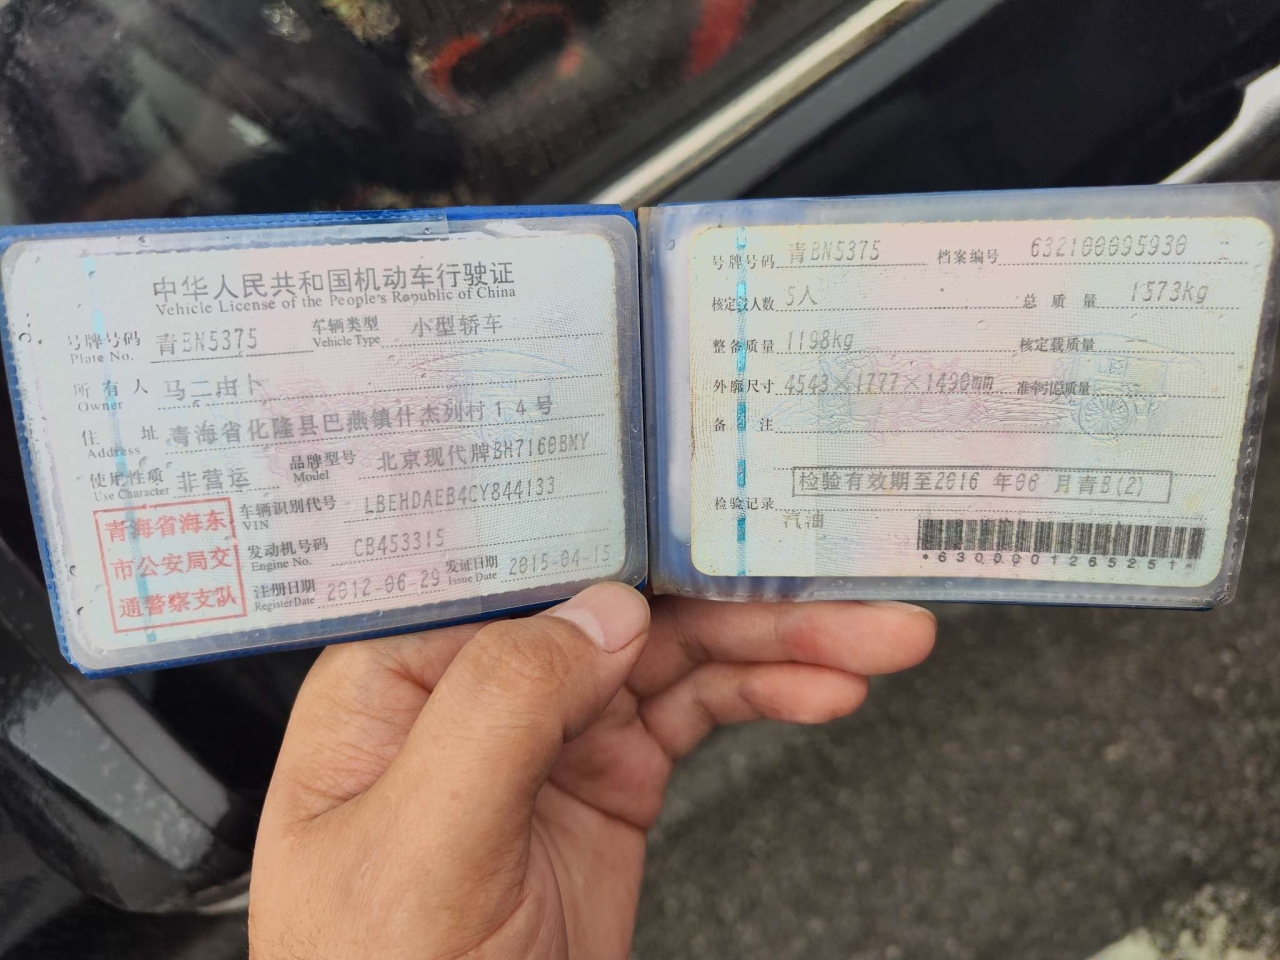 中华人民共和国机动车行驶证
Vehicle License of the People's Republic of China
号牌号码 青BN5375 车辆类型 小型轿车
Plate No. Vehicle Type
所有人 马二由卜
Owner
住址 青海省化隆县巴燕镇什杰列村14号
Address
使用性质 非营运 品牌型号 北京现代牌BH7160BMY
Use Character Model
青海省海东
市公安局交
通警察支队
车辆识别代号 LBEHDAEB4CY844133
VIN
发动机号码 CB453315
Engine No.
注册日期 2012-06-29 发证日期 2015-04-15
Register Date Issue Date
号牌号码 青BN5375 档案编号 632100095930
核定载人数 5人 总质量 1573kg
整备质量 1198kg 核定载质量
外廓尺寸 4543×1777×1490mm 准牵引总质量
备注
检验有效期至2016年06月青B(2)
检验记录
汽油
*6300001265251*